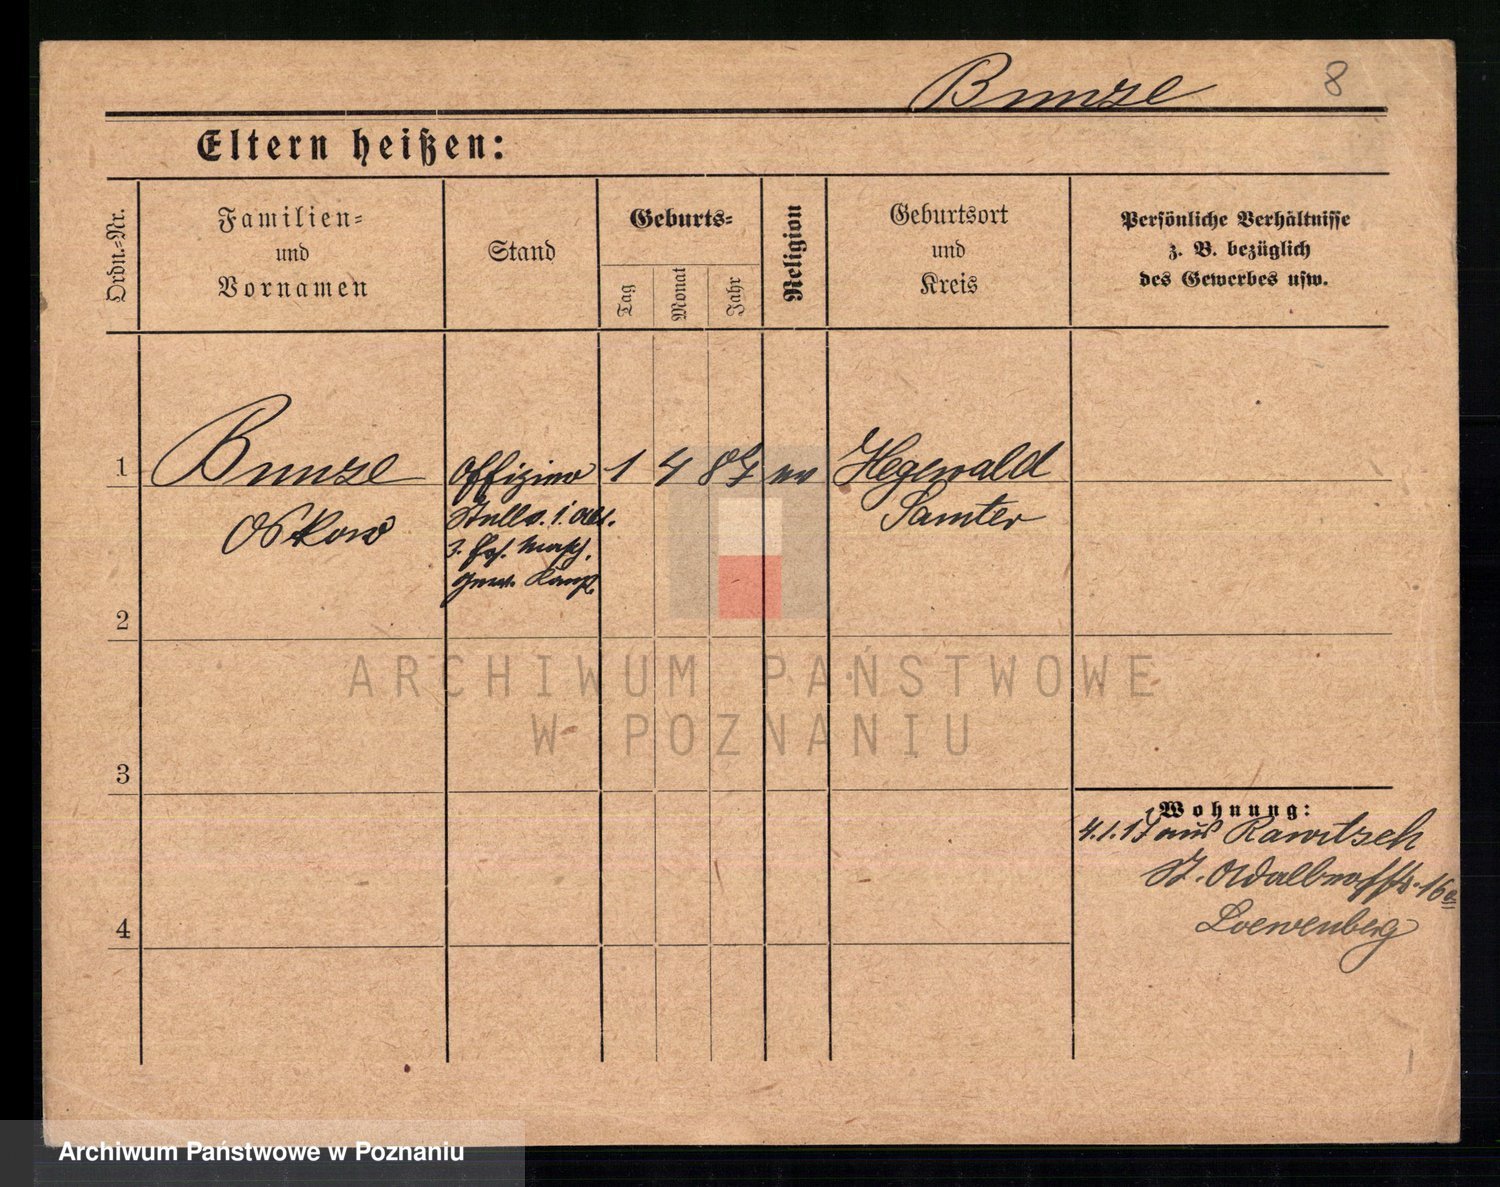 Bunze 8
Eltern heißen:
Ordn.-Nr.
Familien-
und
Vornamen
Stand
Geburts-
Tag
Monat
Jahr
Religion
Geburtsort
und
Kreis
Persönliche Verhältnisse
z. B. bezüglich
des Gewerbes usw.
1 Bunze Offizier 1 4 87 ev Hegewald
Oskar Stellv. i. Samter
3. Ers. Masch.
Gew. Komp.
2
3
4
ARCHIWUM PAŃSTWOWE
W POZNANIU
Wohnung:
4.1.17 aus Rawitsch
St. Adalbertstr. 16
Loewenberg
Archiwum Państwowe w Poznaniu